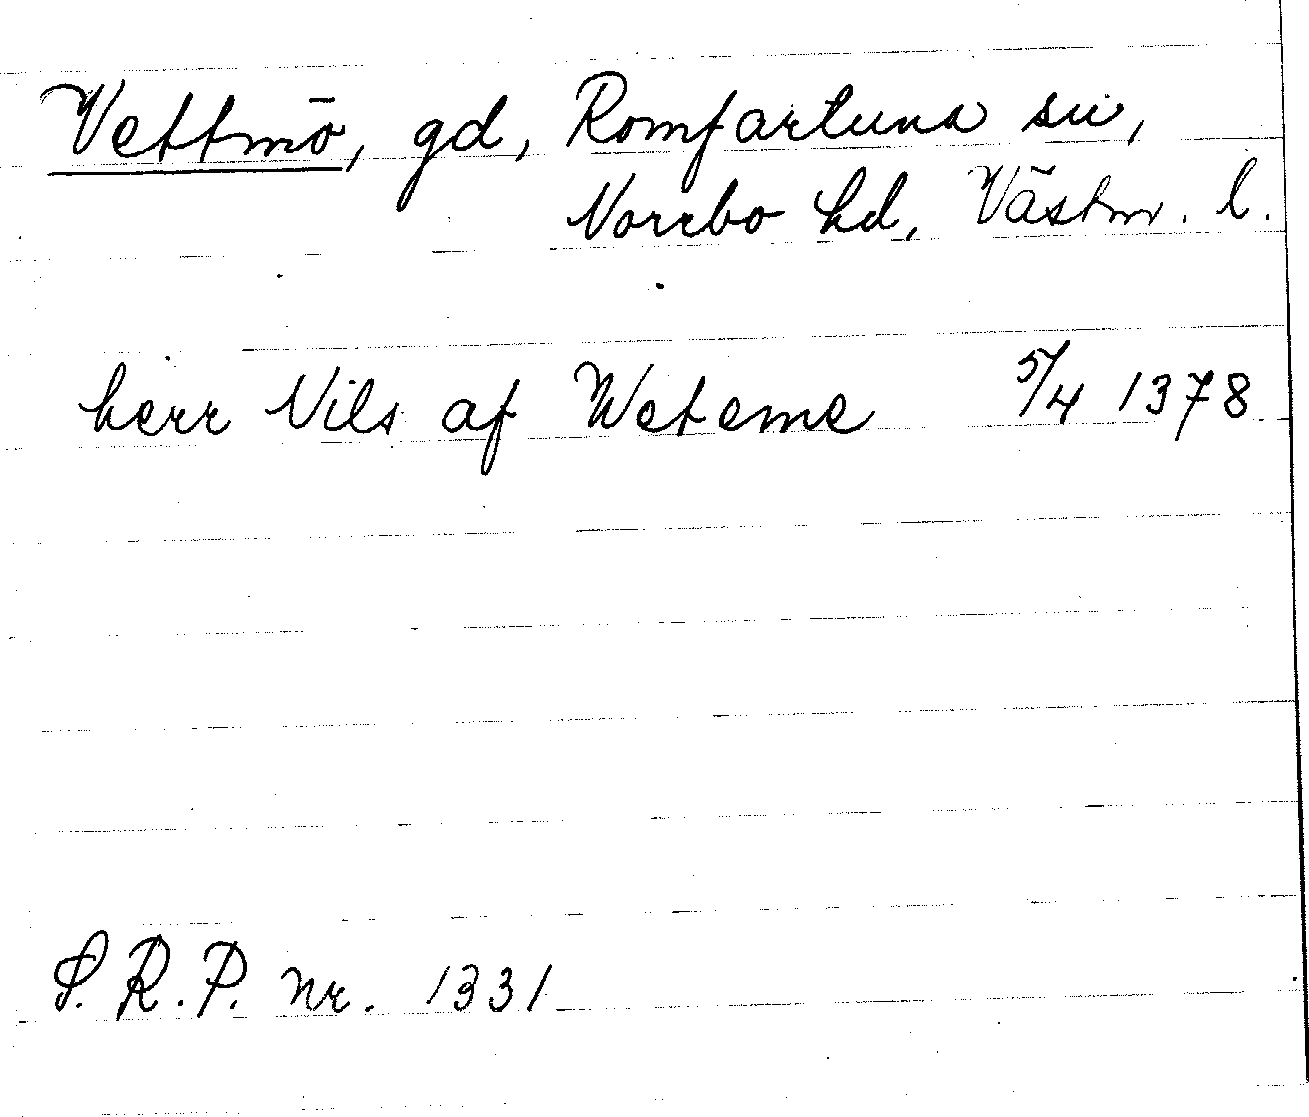 Vettmö, gd, Romfartuna sn,
Norrbo hd, Västm. l.
herr Nils af Weteme 5/4 1378
S.R.P. nr. 1331